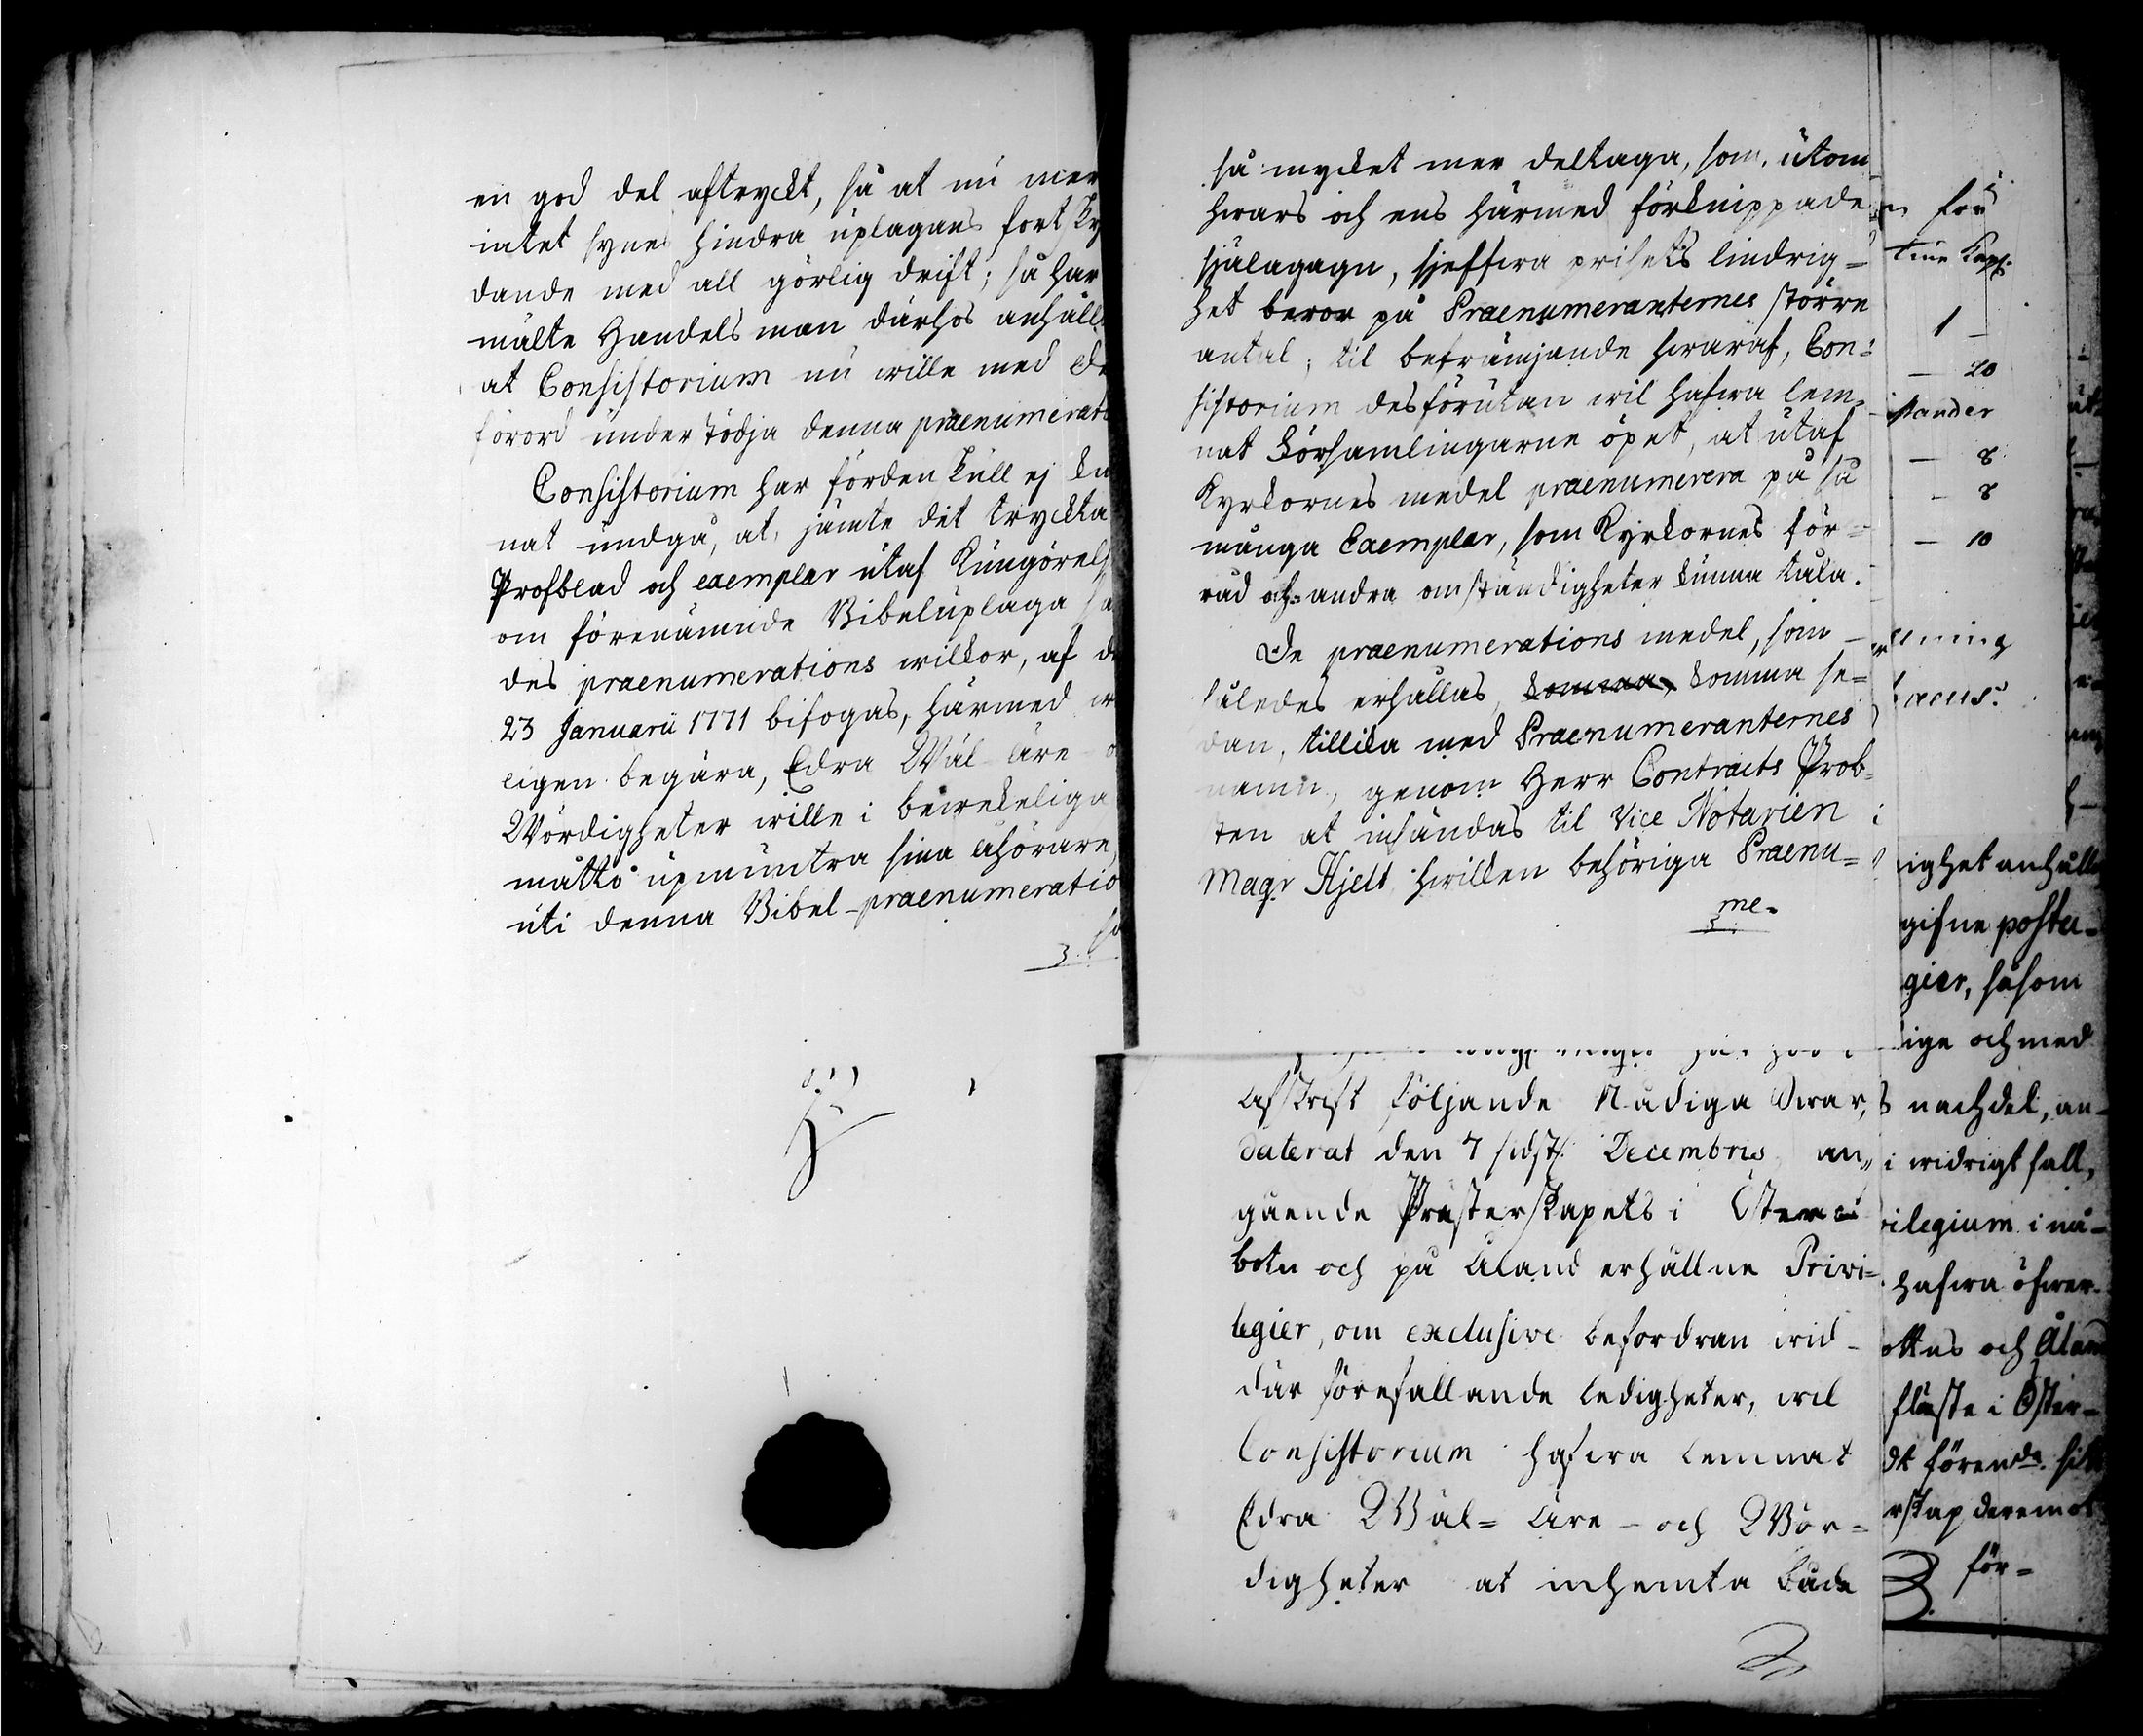 en god del aftryckt, så at nu mer
intet synes hindra uplagans fortsky
dande med all görlig drift; så har
mälte Handelsman därhos anhåll
at Consistorium nu wille med de
förord understödja denna praenumerati
Consistorium har fördenskull ej kun
nat undgå, at, jämte det tryckta
Profblad och exemplar utaf Kungörels
om förenämnde Bibeluplaga sa
des praenumerations wilkor, af d
23 Januarii 1771 bifogas, härmed
ligen begära, Edra Wäl- äre- o
Wördigheter wille i bewekeliga
måtto upmuntra sina åhörare,
uti denna Bibel-praenumeratio
så
så mycket mer deltaga, som, utom
hwars och ens härmed förknippade
själagagn, sjelfwa prisets lindrig=
het beror på Praenumeranternes större
antal; til befrämjande hwaraf, Con=
sistorium desförutan wil hafwa lem=
nat Församlingarne öpet, at utaf
Kyrkornes medel praenumerera på så
många Exemplar, som Kyrkornes för=
råd och andra omständigheter kunna tåla.
De praenumerations medel, som
således erhållas, komma, komma se=
dan, tillika med Praenumeranternes
namn, genom Herr Contracts Prob=
sten at insändas til Vice Notarien
Magr Hjelt, hwilken behöriga Praenu=
me-
Afskrift följande Nådiga Swar,
daterat den 7 sidstl. Decembris, an„
gående Prästerskapets i Öster
botn och på Åland erhållne Privi=
legier, om exclusive befordran wid
där förefallande ledigheter, wil
Consistorium hafwa lemnat
Edra Wäl= äre- och Wör=
digheter at inhemta både
för
1 —
— 20
stander
— 8
— 8
— 10
ning
ighet anhålle
gifne postu-
gier, såsom
lige och med
s nachdel, an-
i widrigt fall,
vilegium i nå-
hafwa öfwer-
ottns och Åland
fläste i Öster-
dt förende. sitt
rskap deremot
för=